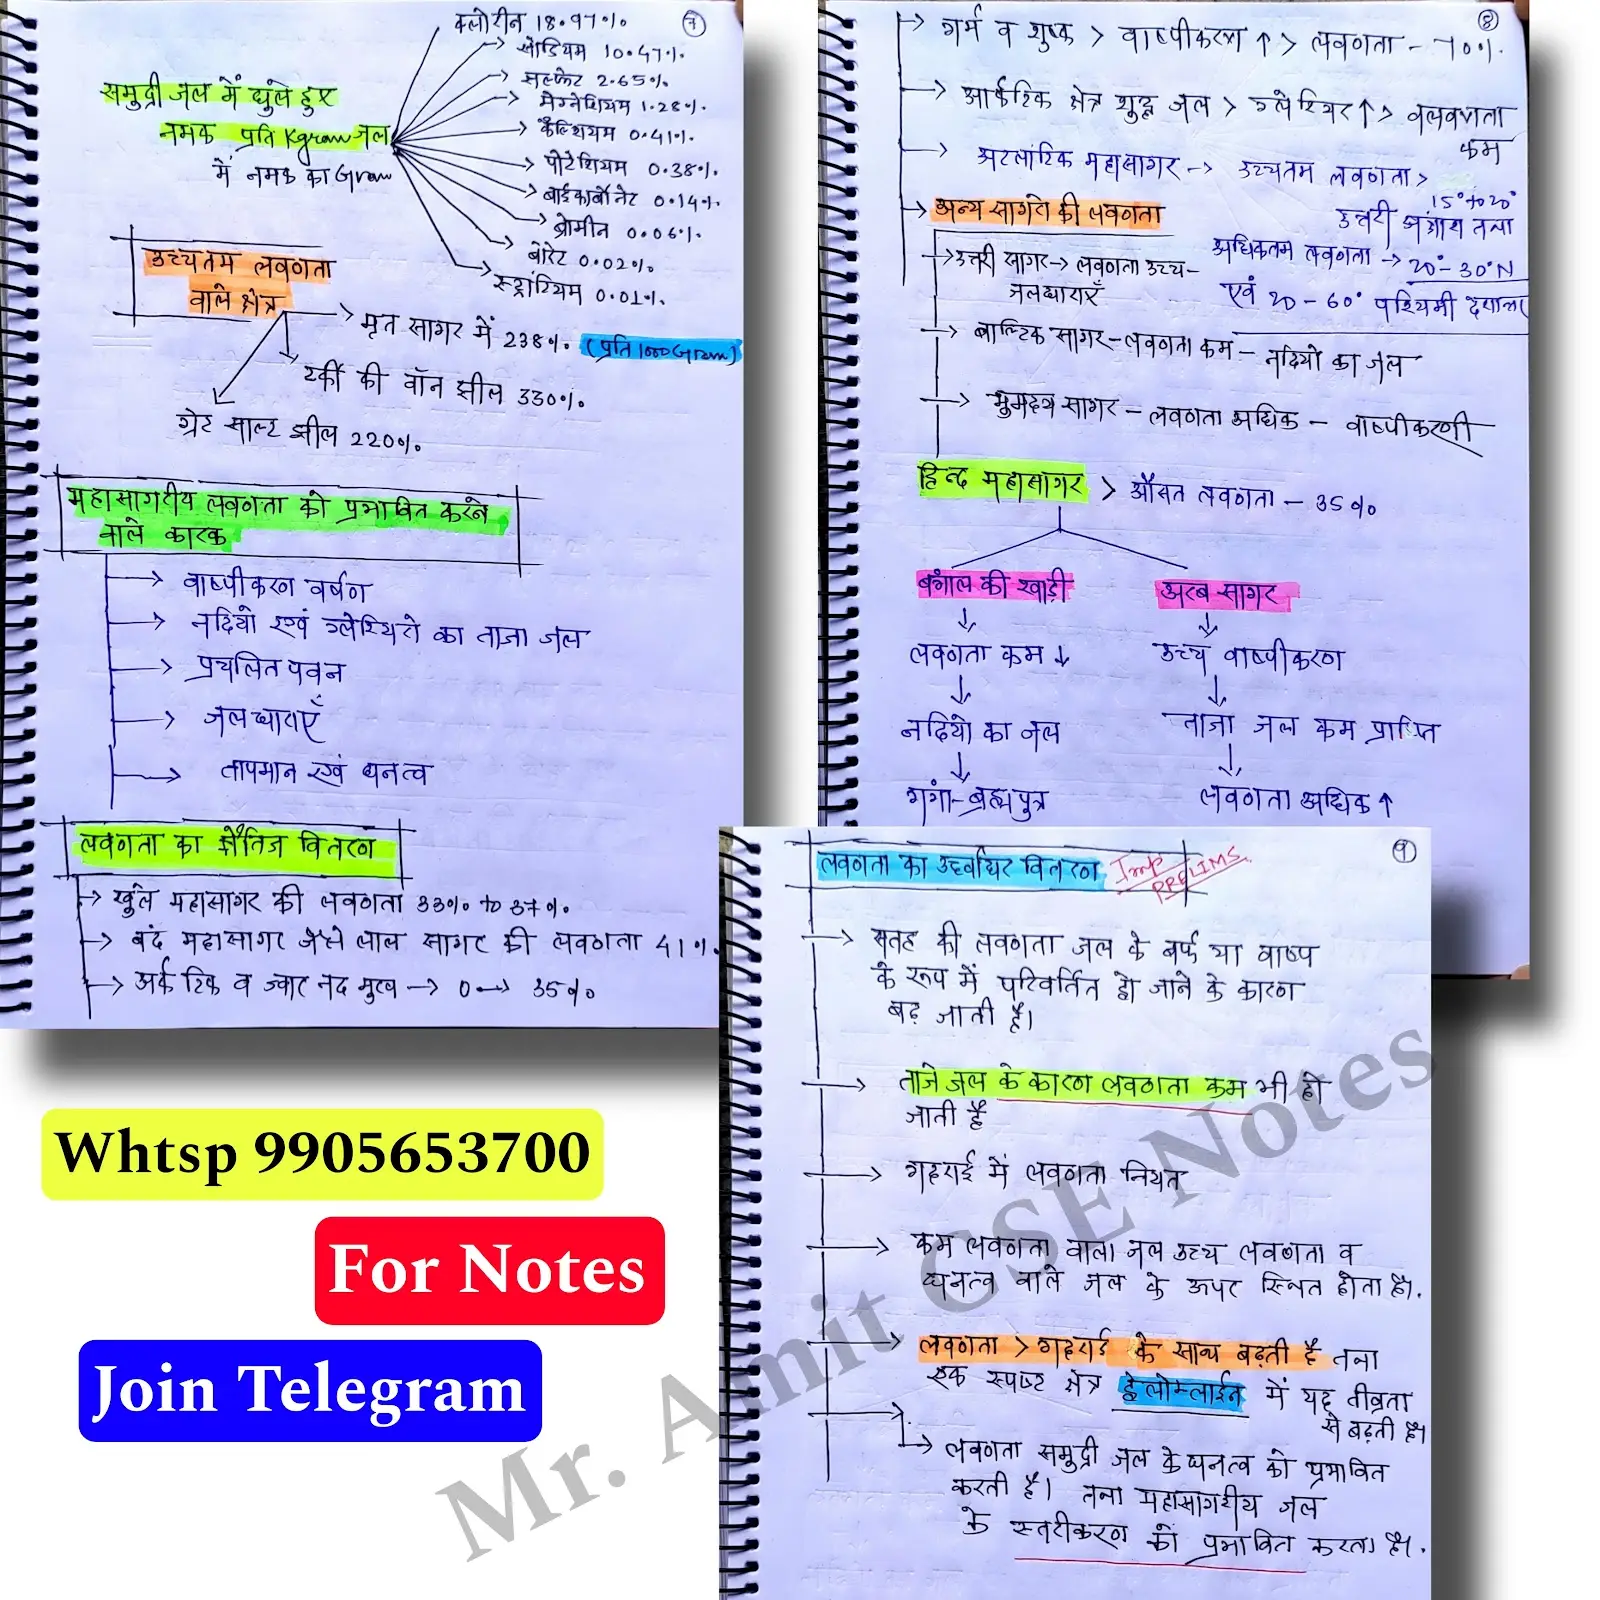 7
क्लोरीन 18.97%
सोडियम 10.47%
सल्फेट 2.65%
मैग्नेशियम 1.28%
कैल्शियम 0.41%
पोटेशियम 0.38%
बाईकार्बोनेट 0.14%
ब्रोमीन 0.06%
बोरेट 0.02%
स्ट्रांशियम 0.01%
समुद्री जल में घुले हुए
नमक प्रति Kgram जल
में नमक का Gram
उच्चतम लवणता
वाले क्षेत्र
मृत सागर में 238% (प्रति 1000 Gram)
टर्की की वॉन झील 330%
ग्रेट साल्ट झील 220%
महासागरीय लवणता को प्रभावित करने
वाले कारक
वाष्पीकरण वर्षण
नदियो एवं ग्लेशियरो का ताजा जल
प्रचलित पवन
जलधाराएँ
तापमान एवं घनत्व
लवणता का क्षैतिज वितरण
खुले महासागर की लवणता 33% to 37%
बंद महासागर जैसे लाल सागर की लवणता 41%
अर्कटिक व ज्वार नद मुख → 0 → 35%
8
गर्म व शुष्क > वाष्पीकरण ↑ > लवणता - 70%
आर्कटिक क्षेत्र शुद्ध जल > ग्लेशियर ↑ >
कम
अटलांटिक महासागर → उच्चतम लवणता >
15° to 20°
उत्तरी अक्षांश तथा
अन्य सागरो की लवणता
अधिकतम लवणता → 20° - 30° N
एवं 20 - 60° पश्चिमी देशान्तर
उत्तरी सागर → लवणता उच्च -
जलधाराएँ
बाल्टिक सागर - लवणता कम - नदियो का जल
भुमध्य सागर - लवणता अधिक - वाष्पीकरण
हिन्द महासागर > औसत लवणता - 35%
बंगाल की खाड़ी
लवणता कम ↓
नदियो का जल
गंगा - ब्रह्मपुत्र
अरब सागर
उच्च वाष्पीकरण
ताजा जल कम प्राप्ति
लवणता अधिक ↑
9
लवणता का उर्ध्वाधर वितरण Imp PRELIMS
सतह की लवणता जल के बर्फ या वाष्प
के रूप में परिवर्तित हो जाने के कारण
बढ़ जाती है।
ताजे जल के कारण लवणता कम भी हो
जाती है
गहराई में लवणता नियत
कम लवणता वाला जल उच्च लवणता व
घनत्व वाले जल के ऊपर स्थित होता है।
लवणता > गहराई के साथ बढ़ती है तथा
एक स्पष्ट क्षेत्र हेलोक्लाईन में यह तीव्रता
से बढ़ती है।
लवणता समुद्री जल के घनत्व को प्रभावित
करती है। तथा महासागरीय जल
के स्तरीकरण को प्रभावित करता है।
Whtsp 9905653700
For Notes
Join Telegram
Mr. Amit CSE Notes